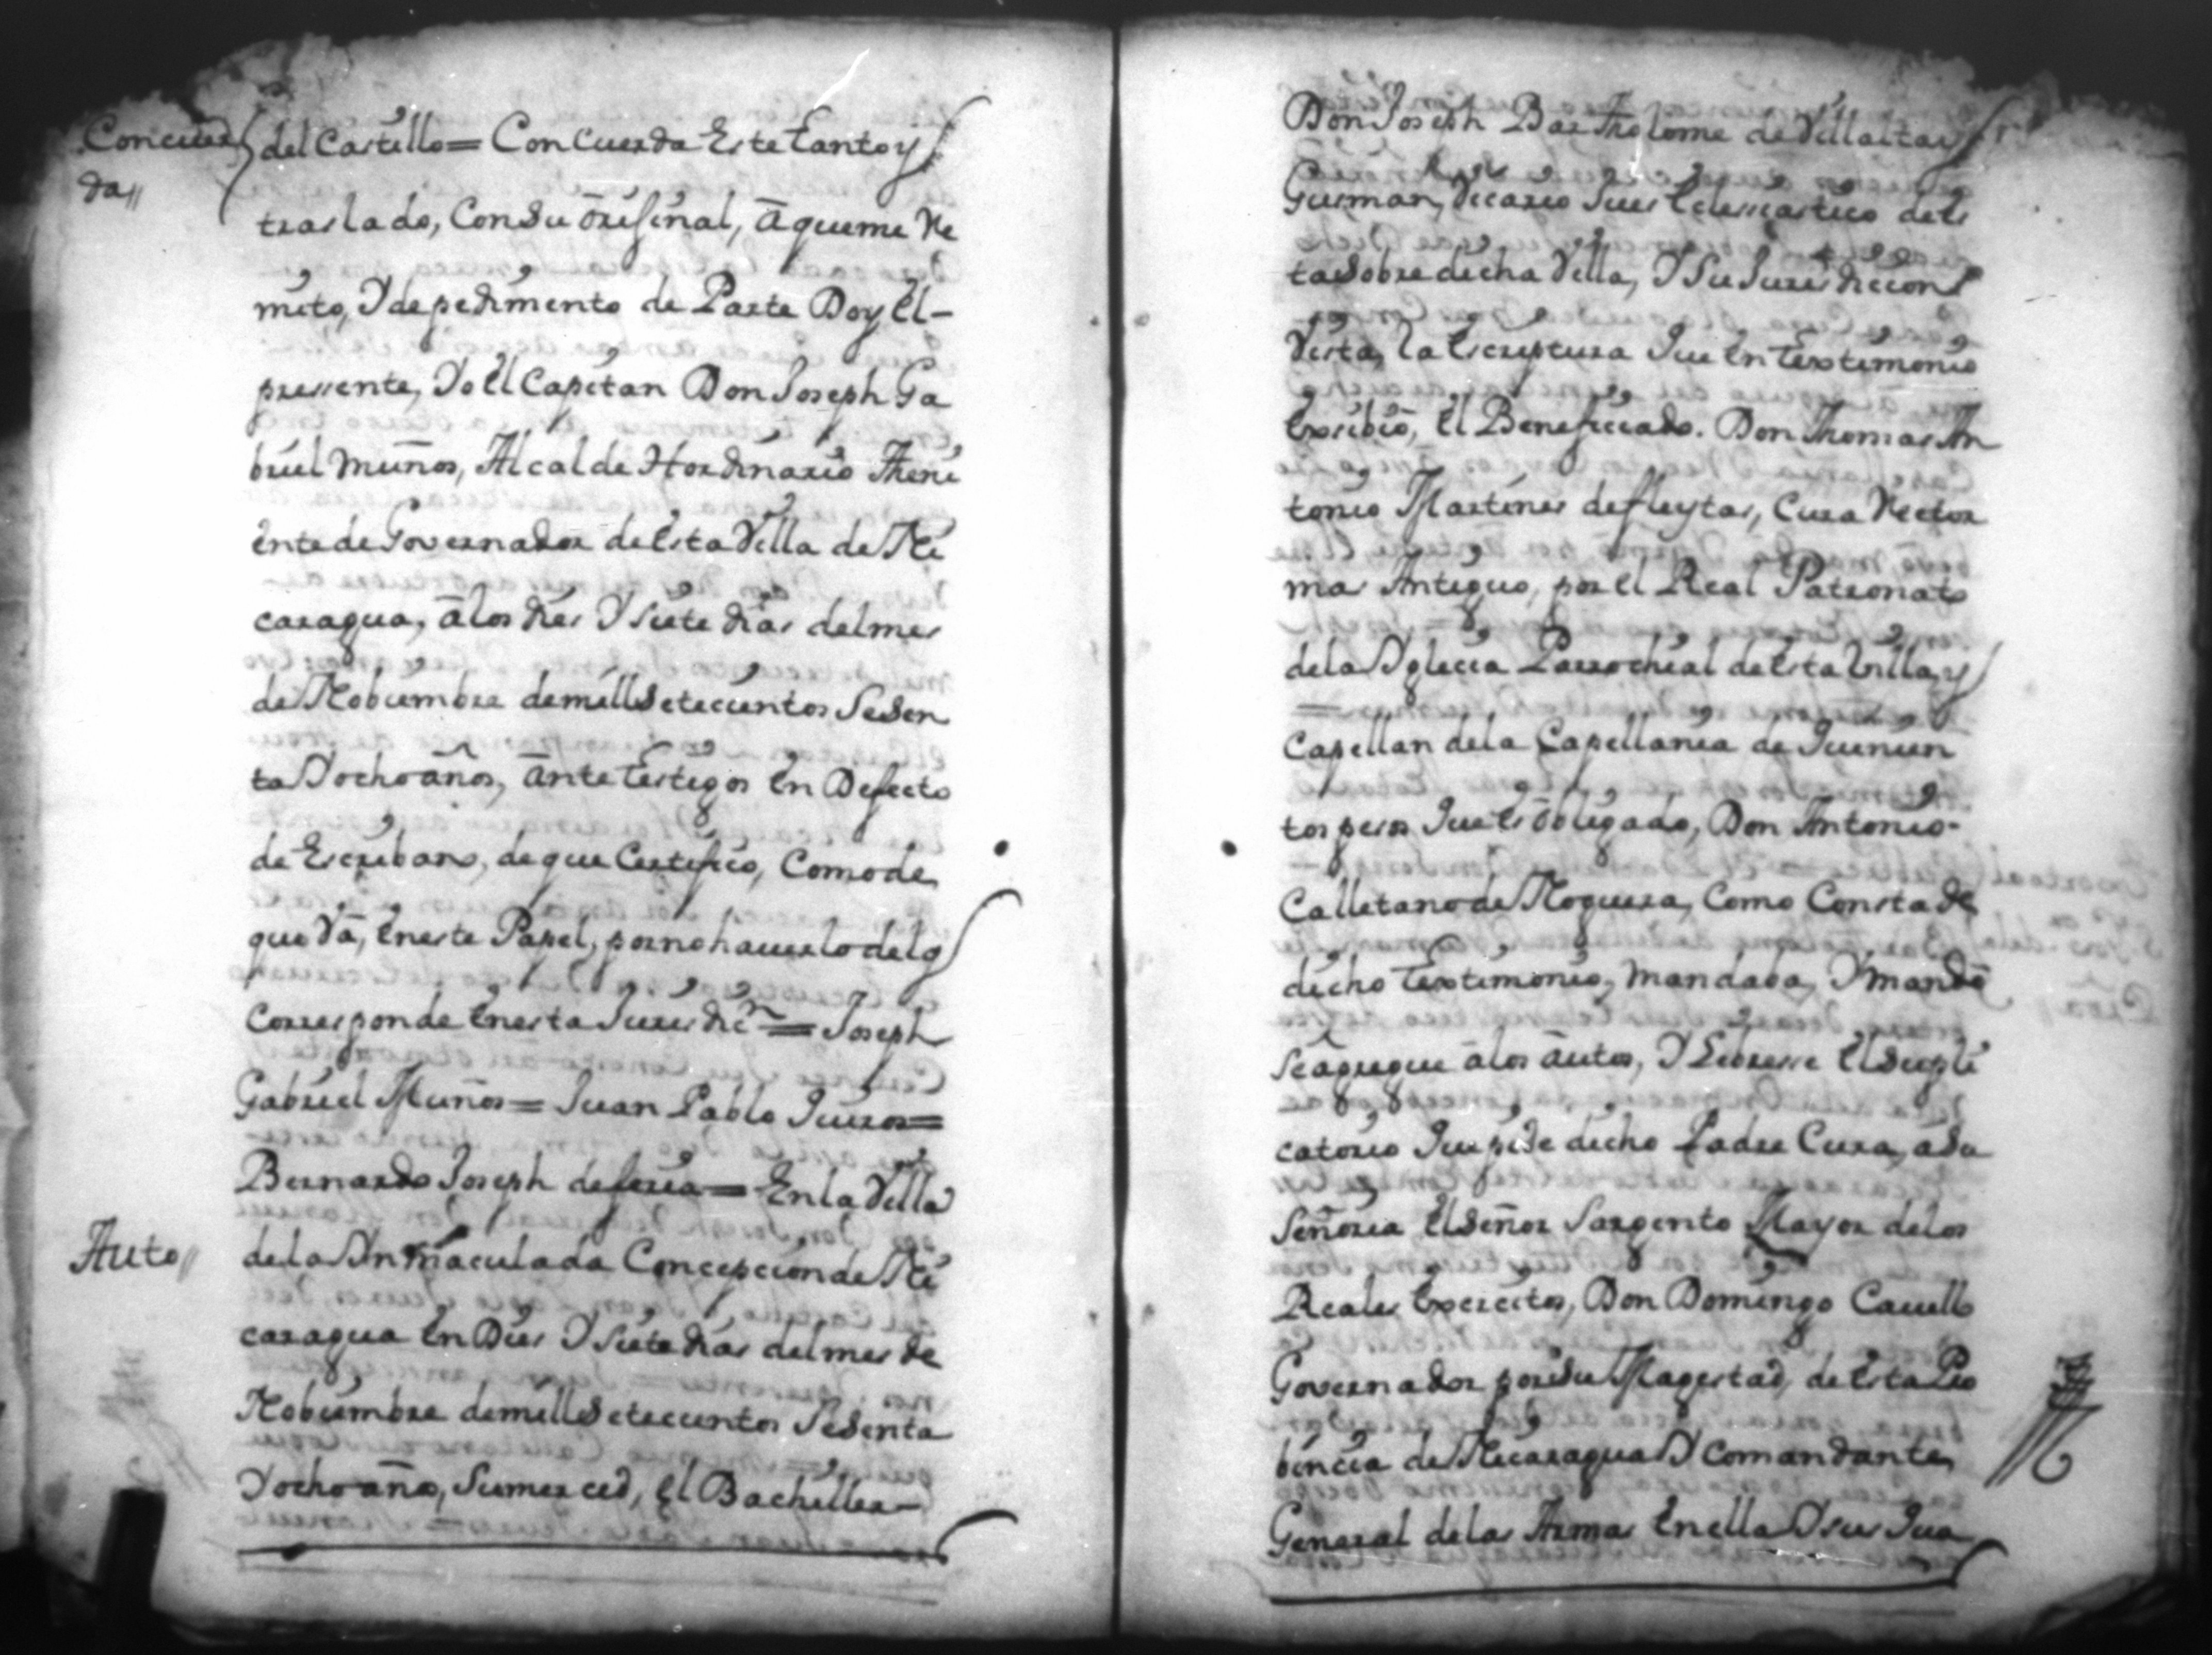 Concuer
da//
del Castillo = Concuerda Este tanto y
traslado, Con Su Orijinal, Aqueme Re
mito, Y de pedimento de Parte Doy El-
pressente, Yo El Capitan Don Joseph Ga
briel Muños, Alcalde Hordinario Theni
ente de Governador de Esta Villa de Ni
caragua, â los dies Y siete dias del mes
de Nobiembre de mill Setecientos Sesen
ta Y ocho años, Ante testigos En Defecto
de Escribano, de que Certifico, Como de
que Vâ, En este Papel, por no haverlo del q
Corresponde En esta Jurisdicn = Joseph
Gabriel Muños = Juan Pablo Quiros =
Bernardo Joseph de feria = En la Villa
Auto//
de la Ynmaculada Concepcion de Ni
caragua En Dies Y siete dias del mes de
Nobiembre de mill Setecientos Sesenta
Y ocho años, Sumerced, El Bachiller-
Don Joseph Bartholome de Villalta y
Gusman, Vicario Jues Eclesiastico de Es
ta Sobredicha Villa, Y Su Jurisdiccion
Vista, la Escriptura Que En Textimonio
Exsibiô, El Beneficiado. Don Thomas An
tonio Martines de fleytas, Cura Rector
mas Antiguo, por El Real Patronato
de la Yglecia Parrochial de Esta Villa, y
Capellan de la Capellania de Quinien
tos pesos Que Es Obligado, Don Antonio-
Calletano de Noguera, Como Consta de
dicho Textimonio, Mandaba, Y mandô
Se agregue â los Autos, Y Librese El Supli
catorio Que pide dicho Padre Cura, a Su
Señoria El Señor Sargento Mayor de los
Reales Exercitos, Don Domingo Cavello
Governador por Su Magestad, de Esta Pro
bincia de Nicaragua Y Comandante
General de las Armas En ella Y su Qua